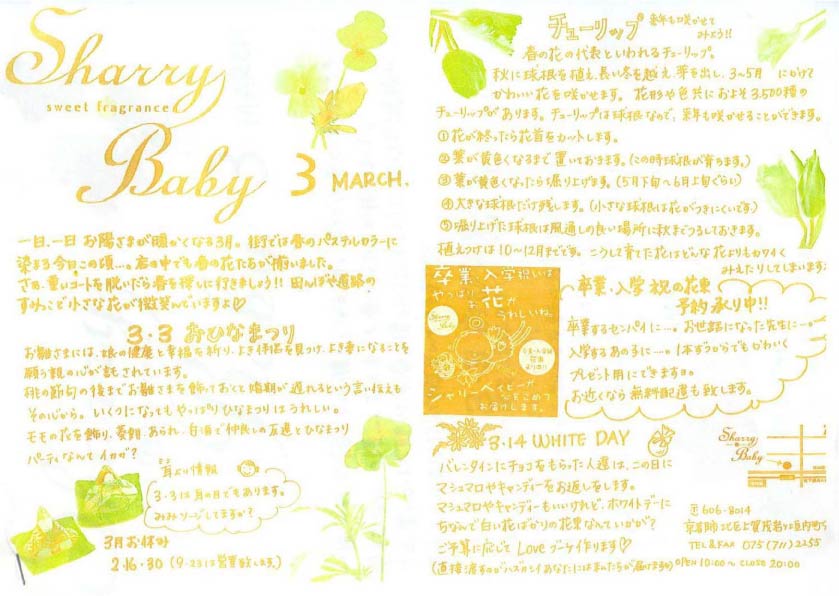 Sharry
sweet fragrance
Baby
3 MARCH.
一日、一日 お陽さまが暖かくなる3月。街では春のパステルカラーに
染まる今日この頃…。店の中でも春の花たちが揃いました。
さぁ、重いコートを脱いだら春を探しに行きましょう!! 田んぼや道路の
すみっこで小さな花が微笑んでいますよ♡
3・3 おひなまつり
お雛さまには、娘の健康と幸福を祈り、よき伴侶を見つけ、よき妻になることを
願う親の心が託されています。
桃の節句の後までお雛さまを飾っておくと婚期が遅れるという言い伝えも
その心から。いくつになってもやっぱりひなまつりはうれしい。
モモの花を飾り、菱餅、あられ、白酒で仲良しの友達とひなまつり
パーティなんてイカが?
ミミより情報
3・3は耳の日でもあります。
みみソージしてますか?
3月お休み
2・16・30 (9・23は営業致します。)
チューリップ 来年も咲かせて
みよう!!
春の花の代表といわれるチューリップ。
秋に球根を植え、長い冬を越え、芽を出し、3~5月 にかけて
かわいい花を咲かせます。花形や色共におよそ3,500種の
チューリップがあります。チューリップは球根なので、来年も咲かせることができます。
①花が終ったら花首をカットします。
②葉が黄色くなるまで置いておきます。(この時球根が育ちます。)
③葉が黄色くなったら堀り上げます。(5月下旬~6月上旬ぐらい)
④大きな球根だけ残します。(小さな球根は花がつきにくいです。)
⑤堀り上げた球根は風通しの良い場所に秋までつるしておきます。
植えつけは10~12月までです。こうして育てた花はどんな花よりもカワイく
みえたりしてしまいます
卒業、入学祝いは
やっぱり
お花が
うれしいね。
Sharry
Baby
シャリーベイビーが
心をこめて
お届けします。
卒業・入学 祝の花束
予約承り中!!
卒業するセンパイに…。お世話になった先生に…。
入学するあの子に…。1本ずつからでもかわいく
プレゼント用にできますョ。
お近くなら無料配達も致します。
3・14 WHITE DAY
バレンタインにチョコをもらった人達は、この日に
マシュマロやキャンディーをお返しをします。
マシュマロやキャンディーもいいけれど、ホワイトデーに
ちなんで白い花ばかりの花束なんていかが?
ご予算に応じて Love ブーケ作ります♡
(直接渡すのがハズカシイあなたにはまんたちが届けます)
Sharry
Baby
〒606-8014
TEL&FAX 075(711)2255
OPEN 10:00~CLOSE 20:00